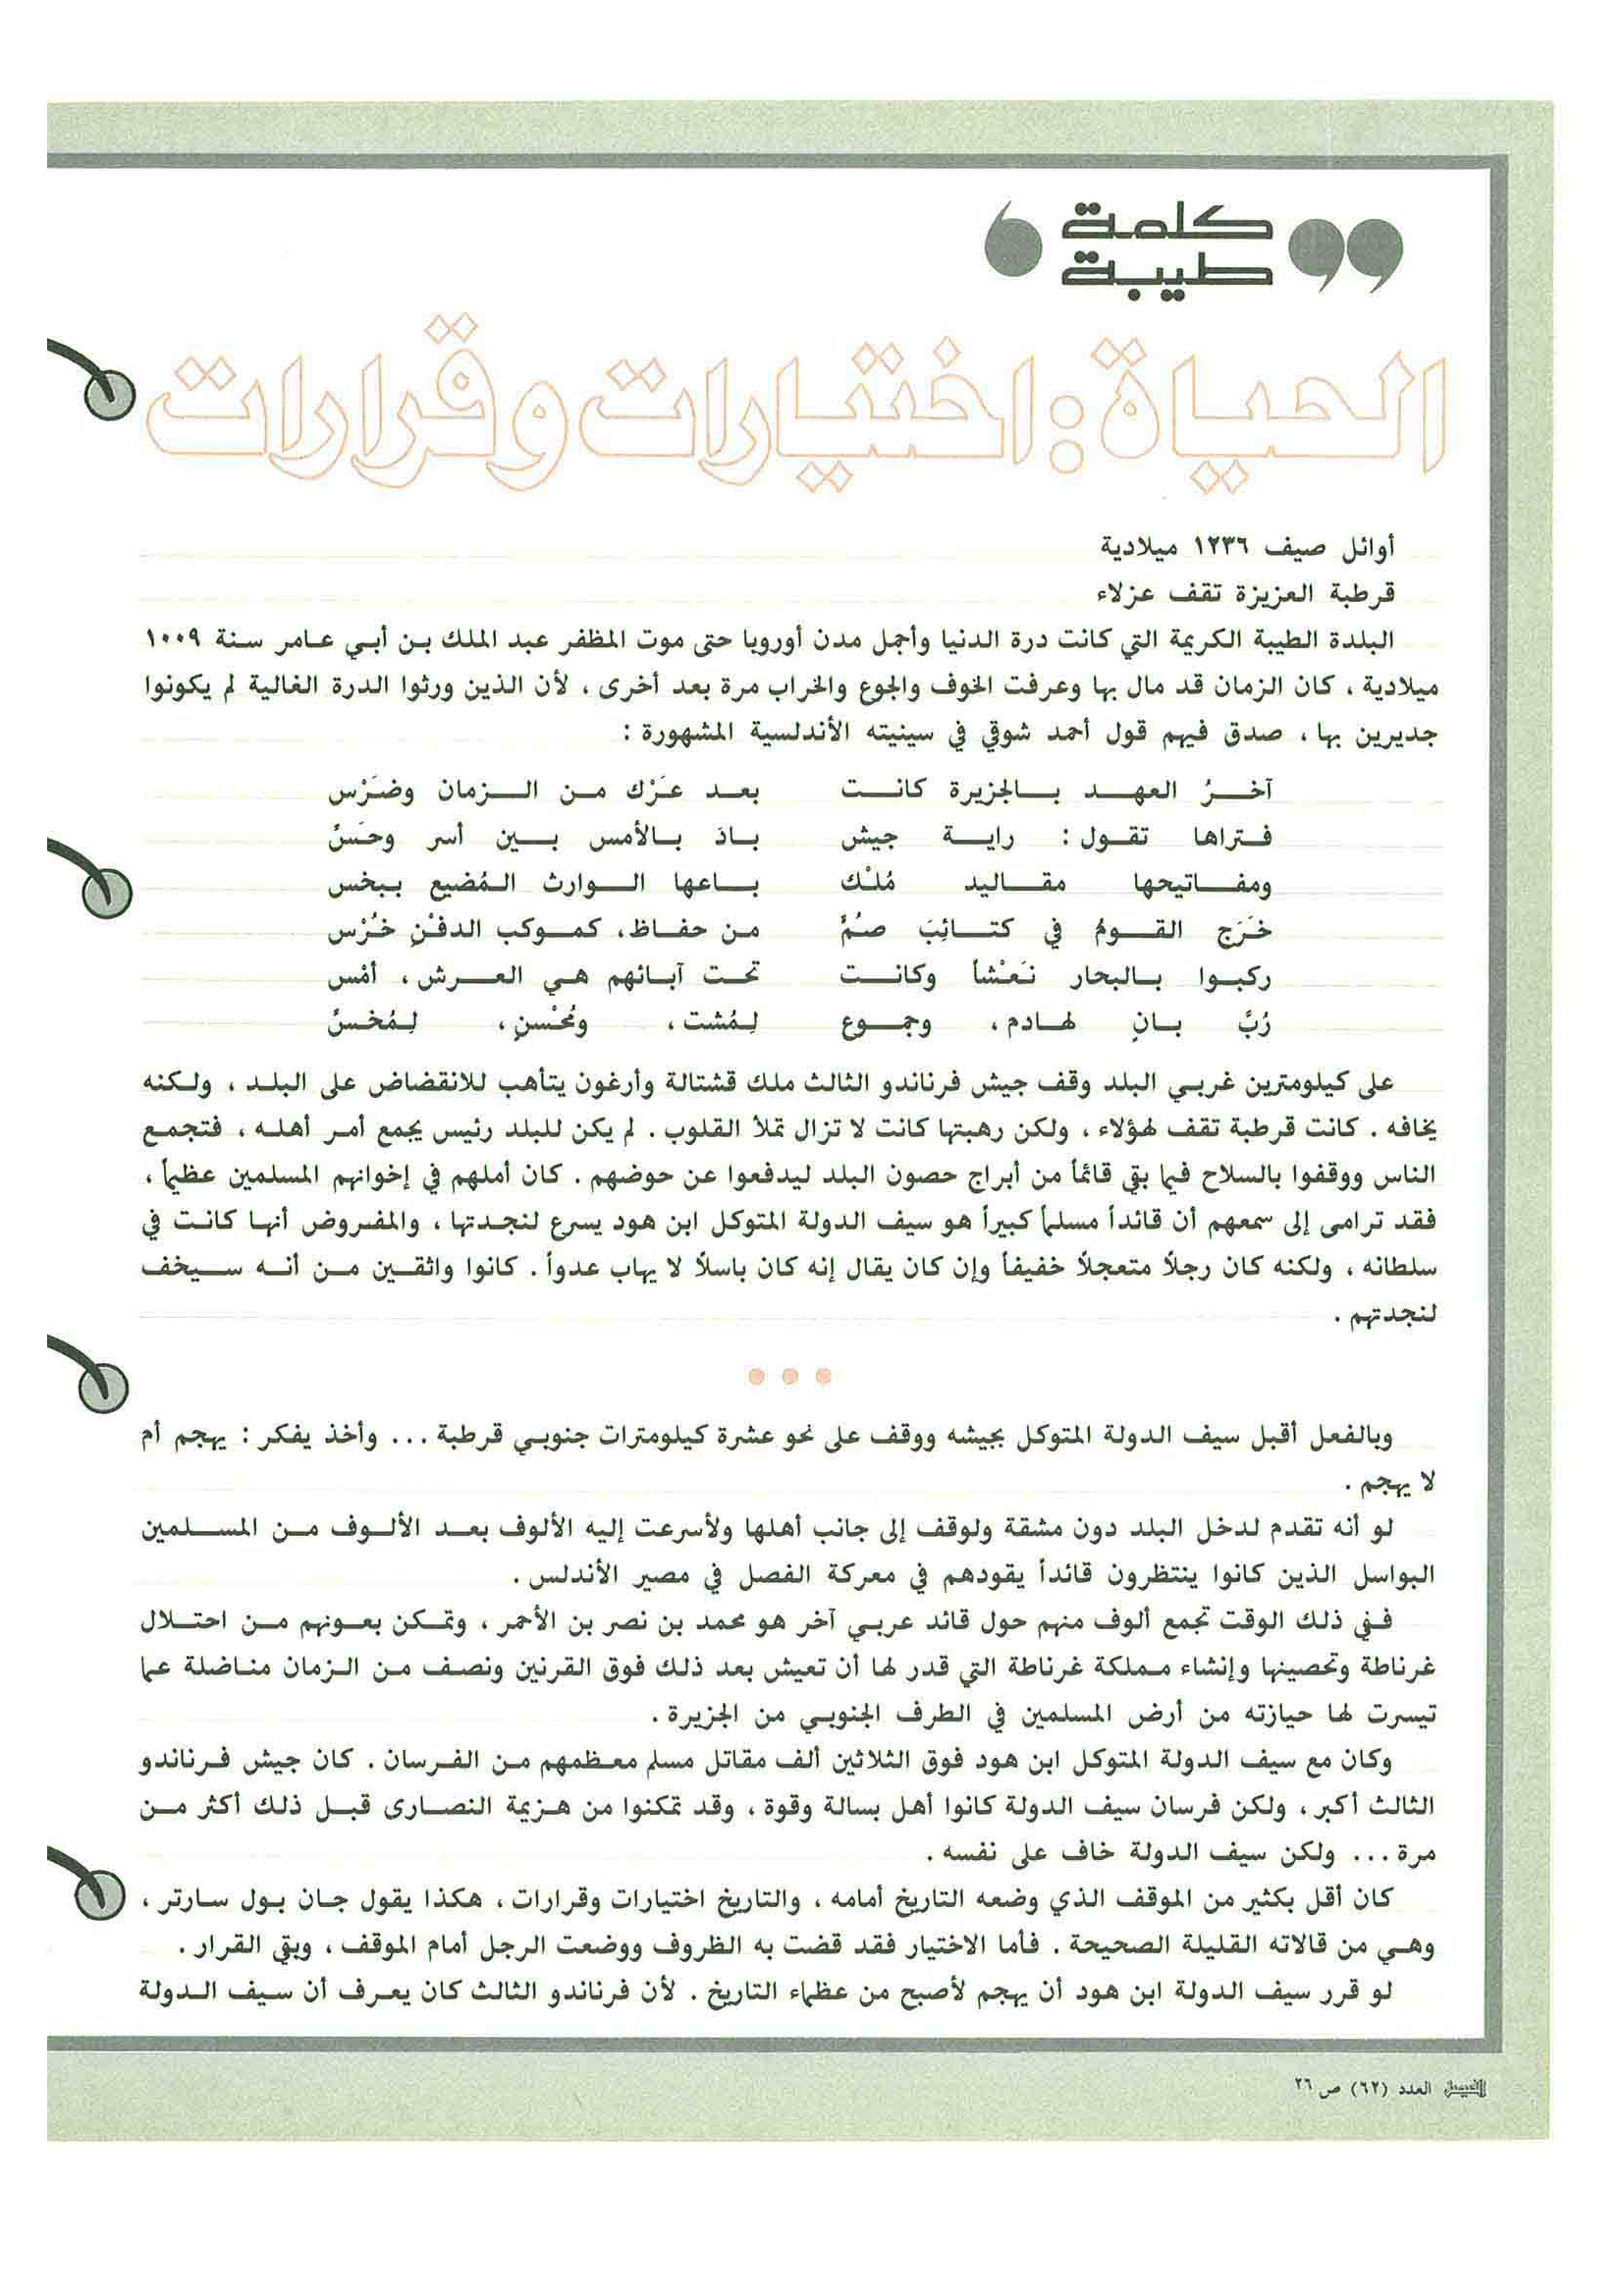 كلمة
طيبة
الحياة : اختيارات وقرارات
أوائل صيف ١٢٣٦ ميلادية
قرطبة العزيزة تقف عزلاء
البلدة الطيبة الكريمة التي كانت درة الدنيا وأجمل مدن أوروبا حتى موت المظفر عبد الملك بن أبي عامر سنة ١٠٠٩
ميلادية ، كان الزمان قد مال بها وعرفت الخوف والجوع والخراب مرة بعد أخرى ، لأن الذين ورثوا الدرة الغالية لم يكونوا
جديرين بها ، صدق فيهم قول أحمد شوقي في سينيته الأندلسية المشهورة :
آخرُ العهد بالجزيرة كانت بعد عَرْك من الزمان وضَرْس
فتراها تقول : راية جيش بادَ بالأمس بين أسر وحَسِّ
ومفاتيحها مقاليد مُلْك باعها الوارث المُضيع ببخس
خَرَج القومُ في كتائِبَ صُمٍّ من حفاظ، كموكب الدفْنِ خُرْس
ركبوا بالبحار نَعْشاً وكانت تحت آبائهم هي العرش ، أمْس
رُبَّ بانٍ لهادم ، وجموع لِمُشت ، ومُحْسنٍ ، لِمُخسِّ
على كيلومترين غربي البلد وقف جيش فرناندو الثالث ملك قشتالة وأرغون يتأهب للانقضاض على البلد ، ولكنه
يخافه . كانت قرطبة تقف لهؤلاء ، ولكن رهبتها كانت لا تزال تملأ القلوب . لم يكن للبلد رئيس يجمع أمر أهله ، فتجمع
الناس ووقفوا بالسلاح فيما بقي قائماً من أبراج حصون البلد ليدفعوا عن حوضهم . كان أملهم في إخوانهم المسلمين عظيماً ،
فقد ترامى إلى سمعهم أن قائداً مسلماً كبيراً هو سيف الدولة المتوكل ابن هود يسرع لنجدتها ، والمفروض أنها كانت في
سلطانه ، ولكنه كان رجلاً متعجلاً خفيفاً وإن كان يقال إنه كان باسلاً لا يهاب عدواً . كانوا واثقين من أنه سيخف
لنجدتهم .
وبالفعل أقبل سيف الدولة المتوكل بجيشه ووقف على نحو عشرة كيلومترات جنوبي قرطبة ... وأخذ يفكر : يهجم أم
لا يهجم .
لو أنه تقدم لدخل البلد دون مشقة ولوقف إلى جانب أهلها ولأسرعت إليه الألوف بعد الألوف من المسلمين
البواسل الذين كانوا ينتظرون قائداً يقودهم في معركة الفصل في مصير الأندلس .
ففي ذلك الوقت تجمع ألوف منهم حول قائد عربي آخر هو محمد بن نصر بن الأحمر ، وتمكن بعونهم من احتلال
غرناطة وتحصينها وإنشاء مملكة غرناطة التي قدر لها أن تعيش بعد ذلك فوق القرنين ونصف من الزمان مناضلة عما
تيسرت لها حيازته من أرض المسلمين في الطرف الجنوبي من الجزيرة .
وكان مع سيف الدولة المتوكل ابن هود فوق الثلاثين ألف مقاتل مسلم معظمهم من الفرسان . كان جيش فرناندو
الثالث أكبر ، ولكن فرسان سيف الدولة كانوا أهل بسالة وقوة ، وقد تمكنوا من هزيمة النصارى قبل ذلك أكثر من
مرة ... ولكن سيف الدولة خاف على نفسه .
كان أقل بكثير من الموقف الذي وضعه التاريخ أمامه ، والتاريخ اختيارات وقرارات ، هكذا يقول جان بول سارتر ،
وهي من قالاته القليلة الصحيحة . فأما الاختيار فقد قضت به الظروف ووضعت الرجل أمام الموقف ، وبقي القرار .
لو قرر سيف الدولة ابن هود أن يهجم لأصبح من عظماء التاريخ . لأن فرناندو الثالث كان يعرف أن سيف الدولة
الفيصل العدد (٦٢) ص ٢٦